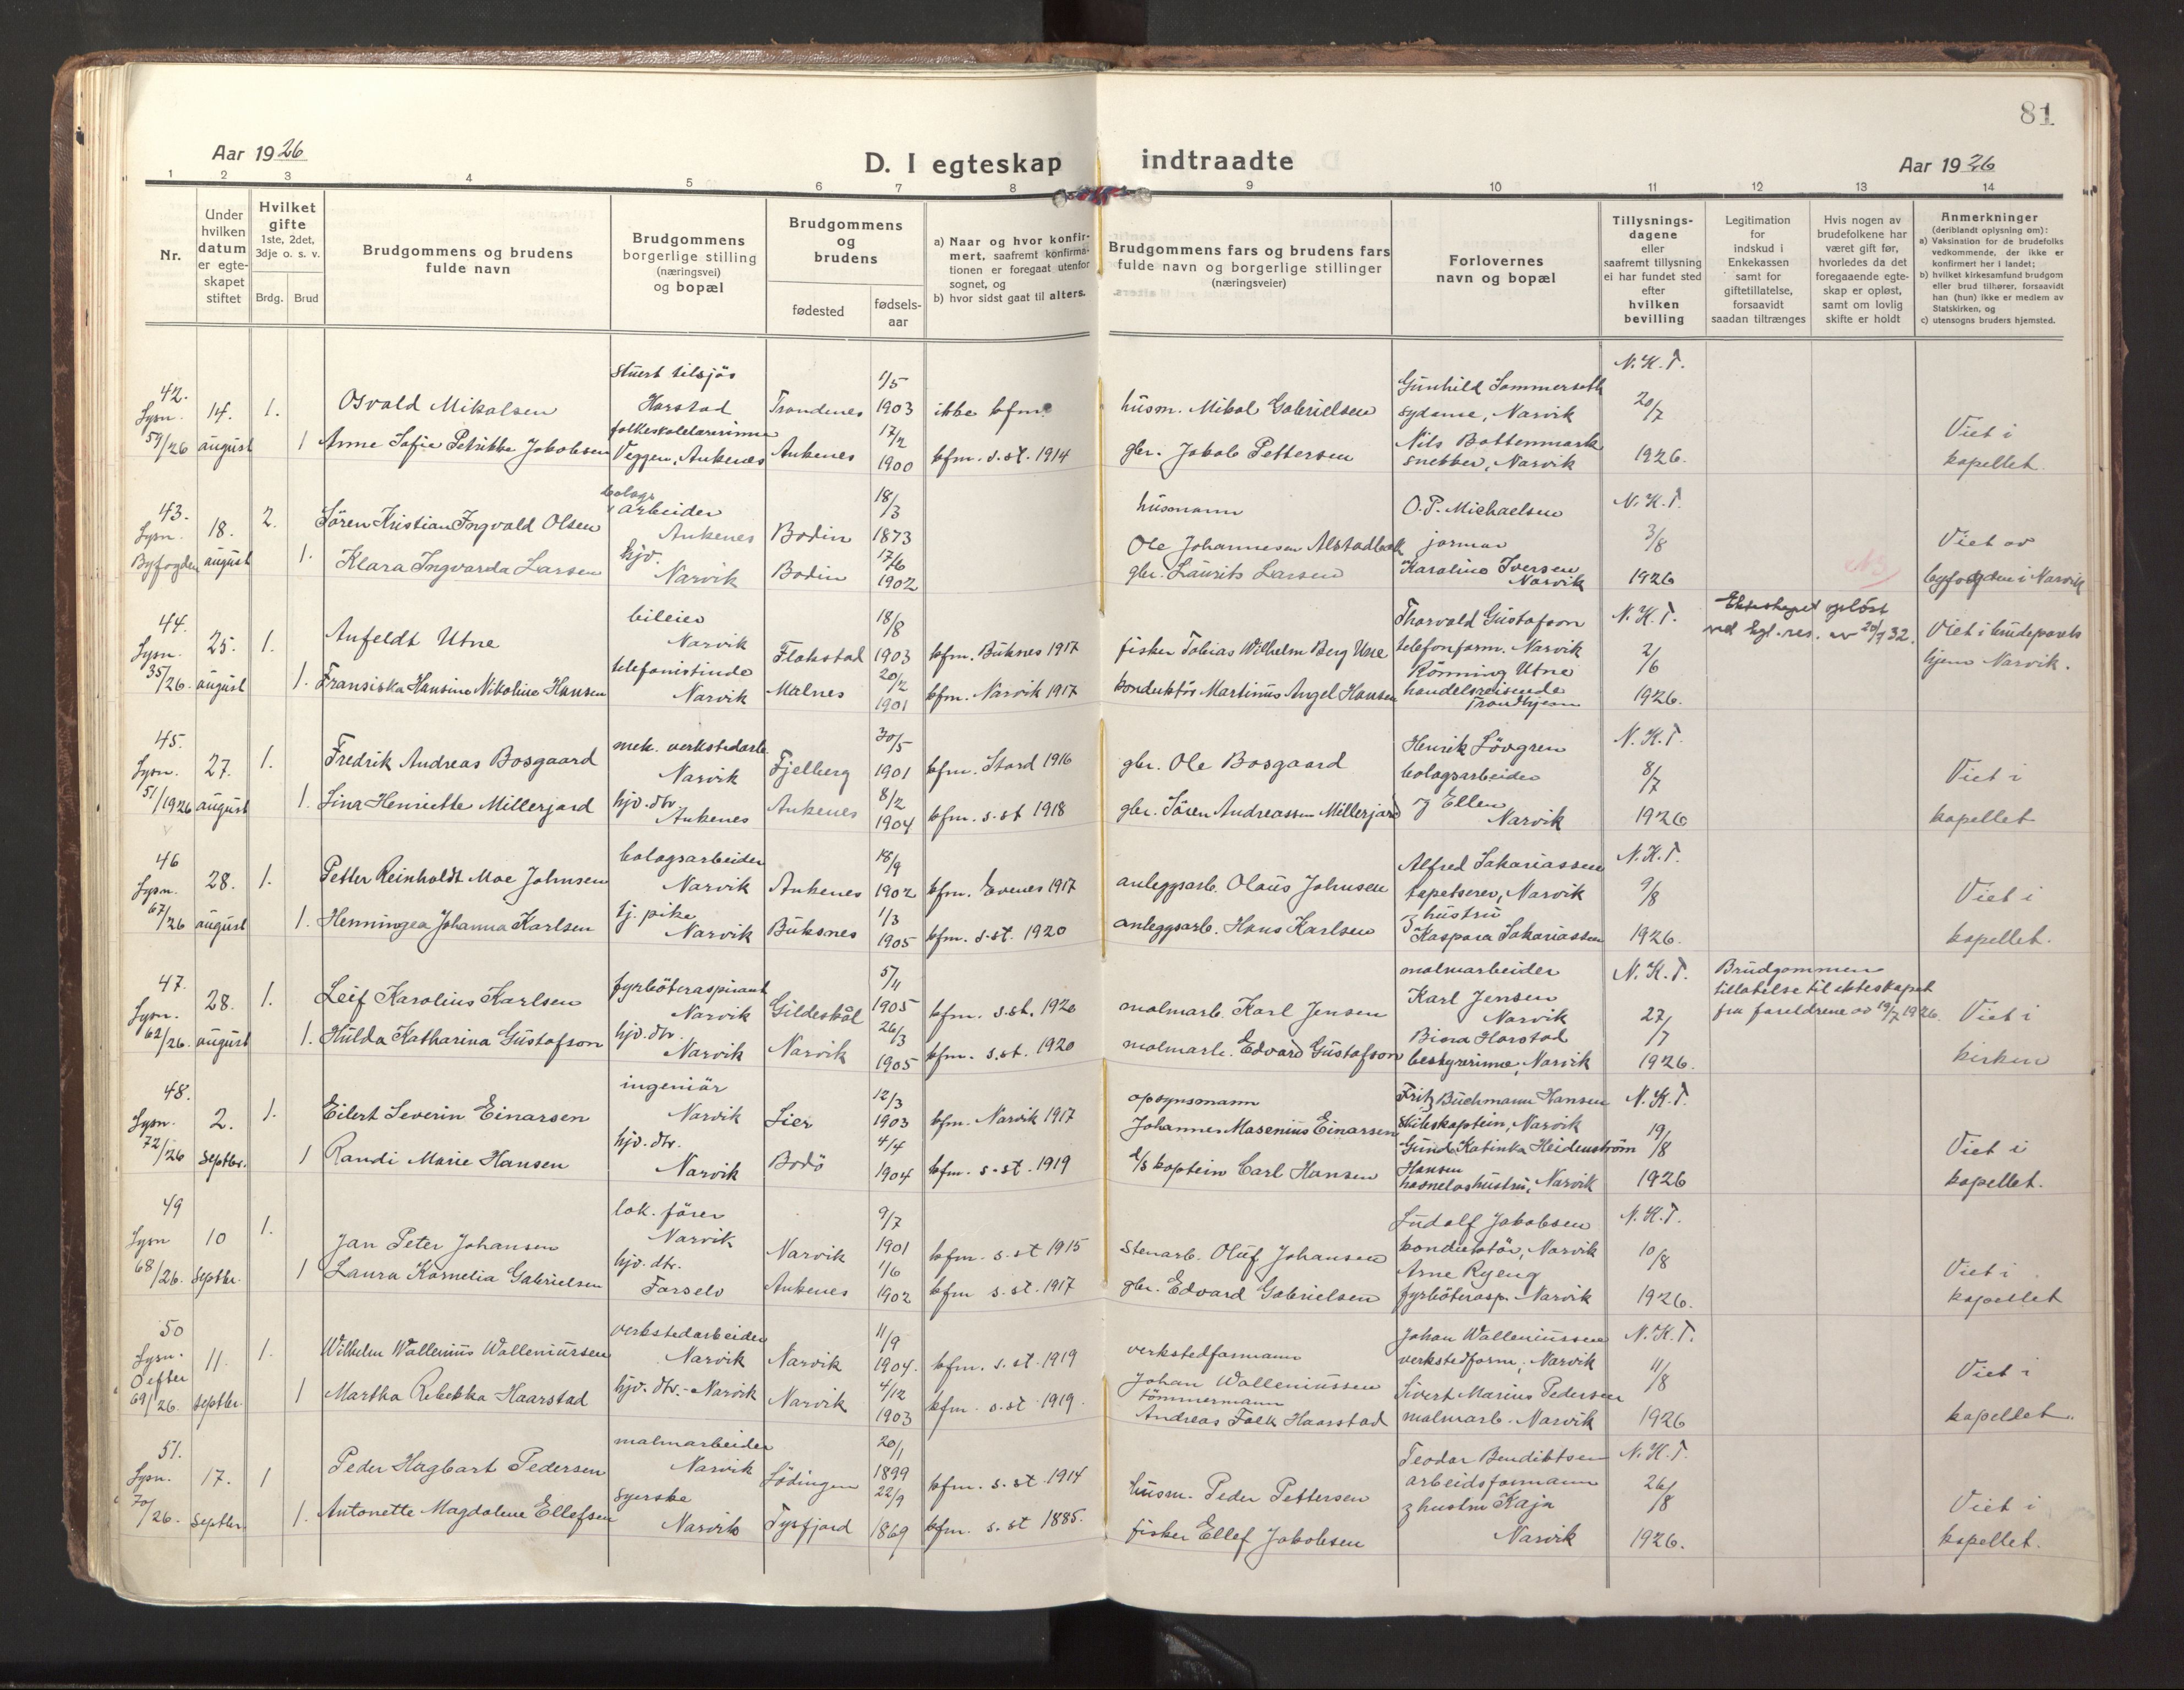 81
Aar 1926
D. I egteskap indtraadte
Aar 1926
1 2 3 4 5 6 7 8 9 10 11 12 13 14
Nr.
Under
hvilken
datum
er egte-
skapet
stiftet
Hvilket
gifte
1ste, 2det,
3dje o. s. v.
Brdg. Brud
Brudgommens og brudens
fulde navn
Brudgommens
borgerlige stilling
(næringsvei)
og bopæl
Brudgommens
og
brudens
fødested
fødsels-
aar
a) Naar og hvor konfir-
mert, saafremt konfirma-
tionen er foregaat utenfor
sognet, og
b) hvor sidst gaat til alters.
Brudgommens fars og brudens fars
fulde navn og borgerlige stillinger
(næringsveier)
Forlovernes
navn og bopæl
Tillysnings-
dagene
eller
saafremt tillysning
ei har fundet sted
efter
hvilken
bevilling
Legitimation
for
indskud i
Enkekassen
samt for
giftetillatelse,
forsaavidt
saadan tiltrænges
Hvis nogen av
brudefolkene har
været gift før,
hvorledes da det
foregaaende egte-
skap er opløst,
samt om lovlig
skifte er holdt
Anmerkninger
(deriblandt oplysning om):
a) Vaksination for de brudefolks
vedkommende, der ikke er
konfirmert her i landet;
b) hvilket kirkesamfund brudgom
eller brud tilhører, forsaavidt
han (hun) ikke er medlem av
Statskirken, og
c) utensogns bruders hjemsted.
42.
Lysn.
59/26
14.
august
1.
1
Osvald Mikalsen
Anne Sofie Petrikke Jakobsen
stuert tilsjøs
Harstad
folkeskolelærerinne
Veggen, Ankenes
Trondenes
Ankenes
1/5
1903
17/2
1900
ikke kfm.
kfm. s. st. 1914
husm. Mikal Gabrielsen
gbr. Jakob Pettersen
Gunhild Sommerseth
sydame, Narvik
Nils Bottenmark
snekker, Narvik
N. K. T.
20/7
1926.
Viet i
kapellet.
43.
Lysn.
Byfogden
18.
august
2.
1.
Sören Kristian Ingvald Olsen
Klara Ingvarda Larsen
bolags
arbeider
Ankenes
hjv.
Narvik
Bodin
Bodin
18/3
1873
17/6
1902
husmann
Ole Johannesen Alstadbakk
gbr. Laurits Larsen
O. P. Michaelsen
jormor
Karoline Iversen
Narvik
N. K. T.
3/8
1926
Viet av
byfogden i Narvik
44.
Lysn.
35/26.
25.
august
1.
1.
Anfeldt Utne
Fransiska Hansine Nikoline Hansen
bileier
Narvik
telefonistinde
Narvik
Flakstad
Malnes
18/8
1903
20/2
1901
kfm. Buknes 1917
kfm. Narvik 1917
fisker Tobias Wilhelm Berg Utne
konduktör Martinus Angel Hansen
Thorvald Gustafson
telefonform. Narvik
Rönning Utne
handelsreisende
Trondhjem
N. K. T.
2/6
1926.
Ekteskapet oplöst
ved kgl. res. av 20/7 32.
Viet i brudeparets
hjem Narvik.
45.
Lysn.
51/1926
27.
august
1.
1.
Fredrik Andreas Bosgaard
Lina Henriette Millerjord
mek. verkstedarb.
Narvik
hjv. dtr.
Ankenes
Fjelberg
Ankenes
30/5
1901
8/2
1904
kfm. Stord 1916
kfm. s. st 1918
gbr. Ole Bosgaard
gbr. Sören Andreassen Millerjord
Henrik Lövgren
bolagsarbeider
og Ellen
Narvik
N. K. T.
8/7
1926
Viet i
kapellet
46
Lysn.
67/26
28.
august
1.
1.
Petter Reinholdt Moe Johnsen
Henningea Johanna Karlsen
bolagsarbeider
Narvik
tj. pike
Narvik
Ankenes
Buksnes
18/9
1902
1/3
1905
kfm. Evenes 1917
kfm. s. st. 1920
anleggsarb. Olaus Johnsen
anleggsarb. Hans Karlsen
Alfred Sakariassen
tapetserer, Narvik
og hustru
Kaspara Sakariassen
N. K. T.
9/8
1926.
Viet i
kapellet.
47.
Lysn.
62/26.
28.
august
1.
1.
Leif Karolius Karlsen
Hulda Katharina Gustafson
fyrböteraspirant
Narvik
hjv. dtr.
Narvik
Gildeskål
Narvik
5/11
1905
26/3
1905
kfm. s. st. 1920
kfm. s. st. 1920
malmarb. Karl Jensen
malmarb. Edvard Gustafson
malmarbeider
Karl Jensen
Narvik
Biena Horstad
bestyrerinne, Narvik
N. K. T.
27/7
1926.
Brudgommen
tillatelse til ekteskapet
fra foreldrene av 19/7 1926.
Viet i
kirken
48.
Lysn.
72/26
2.
Septbr.
1.
1
Eilert Severin Einarsen
Randi Marie Hansen
ingeniör
Narvik
hjv. dtr.
Narvik
Lier
Bodö
12/3
1903
4/4
1904
kfm. Narvik 1917
kfm. s. st. 1919
opsynsmann
Johannes Masenius Einarsen
d/s kaptein Carl Hansen
Fritz Buchmann Hansen
skibskaptein, Narvik
Gunda Katinka Heidenström
Hansen
havnefogshustru, Narvik
N. K. T.
19/8
1926
Viet i
kapellet.
49
Lysn
68/26.
10
Septbr.
1.
1
Jan Peter Johansen
Laura Kornelia Gabrielsen
lok. förer
Narvik
hjv. dtr.
Farselv
Narvik
Ankenes
9/7
1901
1/6
1902
kfm. s. st 1915
kfm s. st. 1917
Stenarb. Oluf Johansen
gbr. Edvard Gabrielsen
Ludolf Jakobsen
konduktör, Narvik
Arne Ryeng
fyrböterasp. Narvik
N. K. T.
10/8
1926.
Viet i
kapellet
50
Lysn.
69/26.
11.
Septbr.
1.
1
Wilhelm Wallenius Walleniussen
Martha Rebekka Haarstad
verkstedarbeider
Narvik
hjv. dtr. - Narvik
Narvik
Narvik
11/9
1904.
4/12
1903
kfm. s. st. 1919
kfm. s. st. 1919.
verkstedformann
Johan Walleniussen
tömmermann
Andreas Falk Haarstad
Johan Walleniussen
verkstedform., Narvik
Sivert Marius Pedersen
malmarb. Narvik
N. K. T.
11/8
1926
Viet i
kapellet.
51.
Lysn.
70/26.
17.
Septbr.
1
1.
Peder Hagbart Pedersen
Antonette Magdalene Ellefsen
malmarbeider
Narvik
syerske
Narvik
Lödingen
Tysfjord
20/1
1899
22/9
1869
kfm. s. st. 1914
kfm. s. st 1885.
husm. Peder Pettersen
fisker Ellef Jakobsen
Teodor Bendiktsen
arbeidsformann
og hustru Kaja
Narvik
N. K. T.
26/8
1926.
Viet i
kapellet.